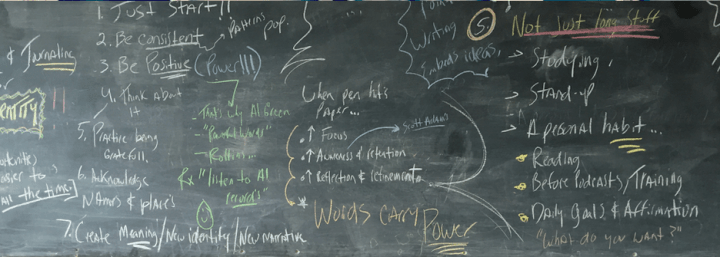 & Journaling
Identity
all the time.
1. Just Start!!
Patterns
pop.
2. Be consistent
3. Be Positive (Power!!!)
4. Think About
it
5. Practice being
Gratefull.
6. Acknowledge
Names & places
7. Create Meaning/New identity/New narrative
- That's why Al Green
Rx "listen to Al
records"
When pen hits
Paper...
• ↑ Focus
Scott Adams
• ↑ Awareness & retention
• ↑ Reflection & refinement
* Words Carry Power
Writing
Imbeds ideas,
5
Not Just long stuff
→ Studying,
→ Stand-up
→ A personal habit...
Reading
Before Podcasts/Training
Daily Goals & Affirmation
"What do you want?"